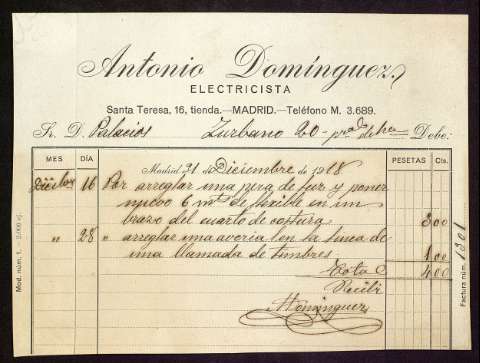 Antonio Domínguez
ELECTRICISTA
Santa Teresa, 16, tienda.—MADRID.—Teléfono M. 3.689.
Sr. D. Palacios Zurbano 20 - pral. Debe:
MES DÍA Madrid 31 de Diciembre de 1918 PESETAS Cts.
16 Por arreglar una pera de luz y poner
nuevo 6 mts de flexible en un
brazo del cuarto de costura 3 00
" 28 " arreglar una averia en la linea de
una llamada de timbres 1 00
Total 4 00
Recibí
A Dominguez
Mod. núm. 1.
Factura núm. 1301